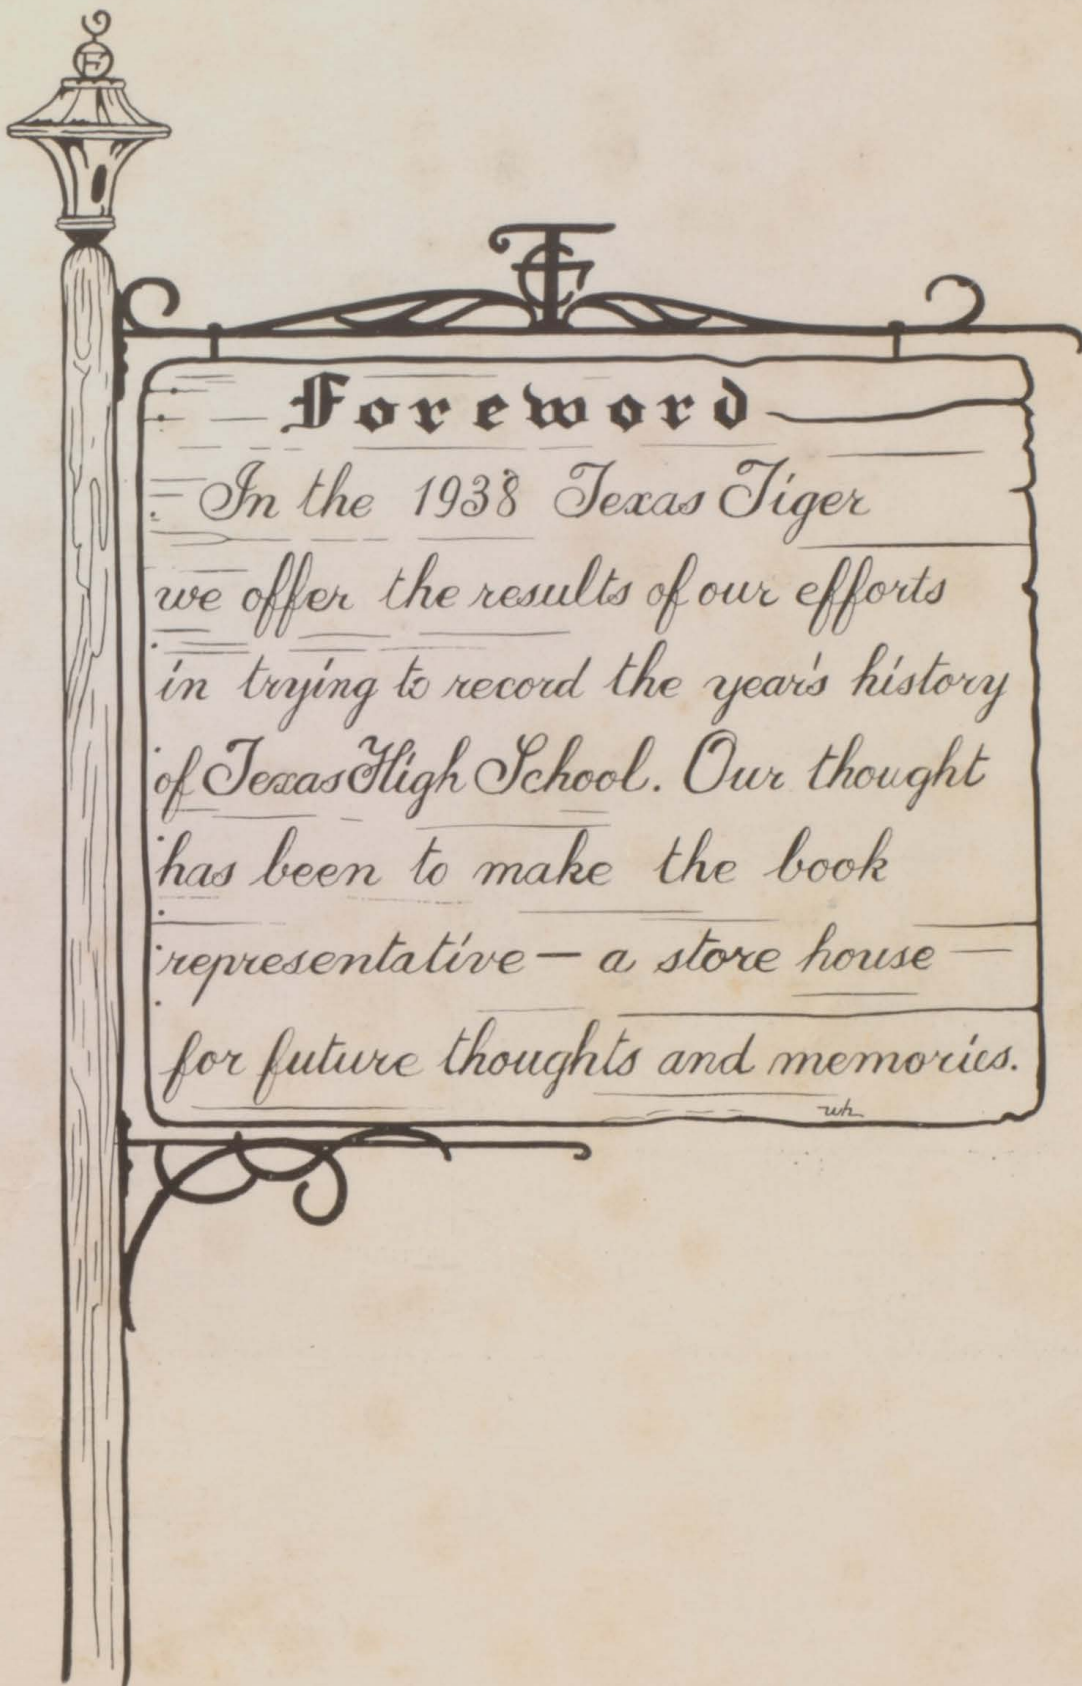 F
Foreword
In the 1938 Texas Tiger
we offer the results of our efforts
in trying to record the year's history
of Texas High School. Our thought
has been to make the book
representative — a store house
for future thoughts and memories.